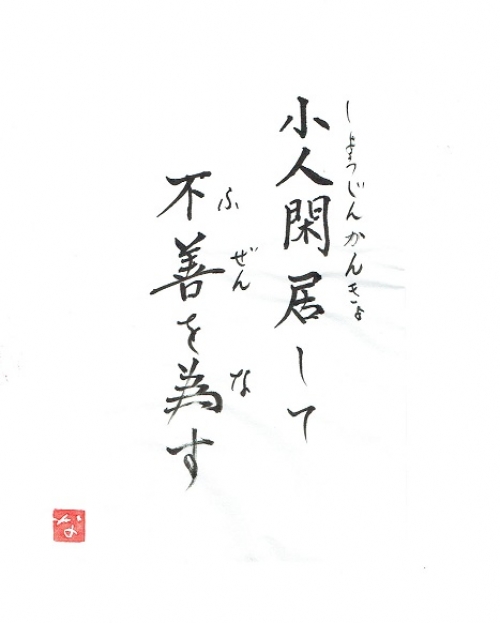 しょうじんかんきょ
小人閑居して
ふぜんな
不善を為す
な